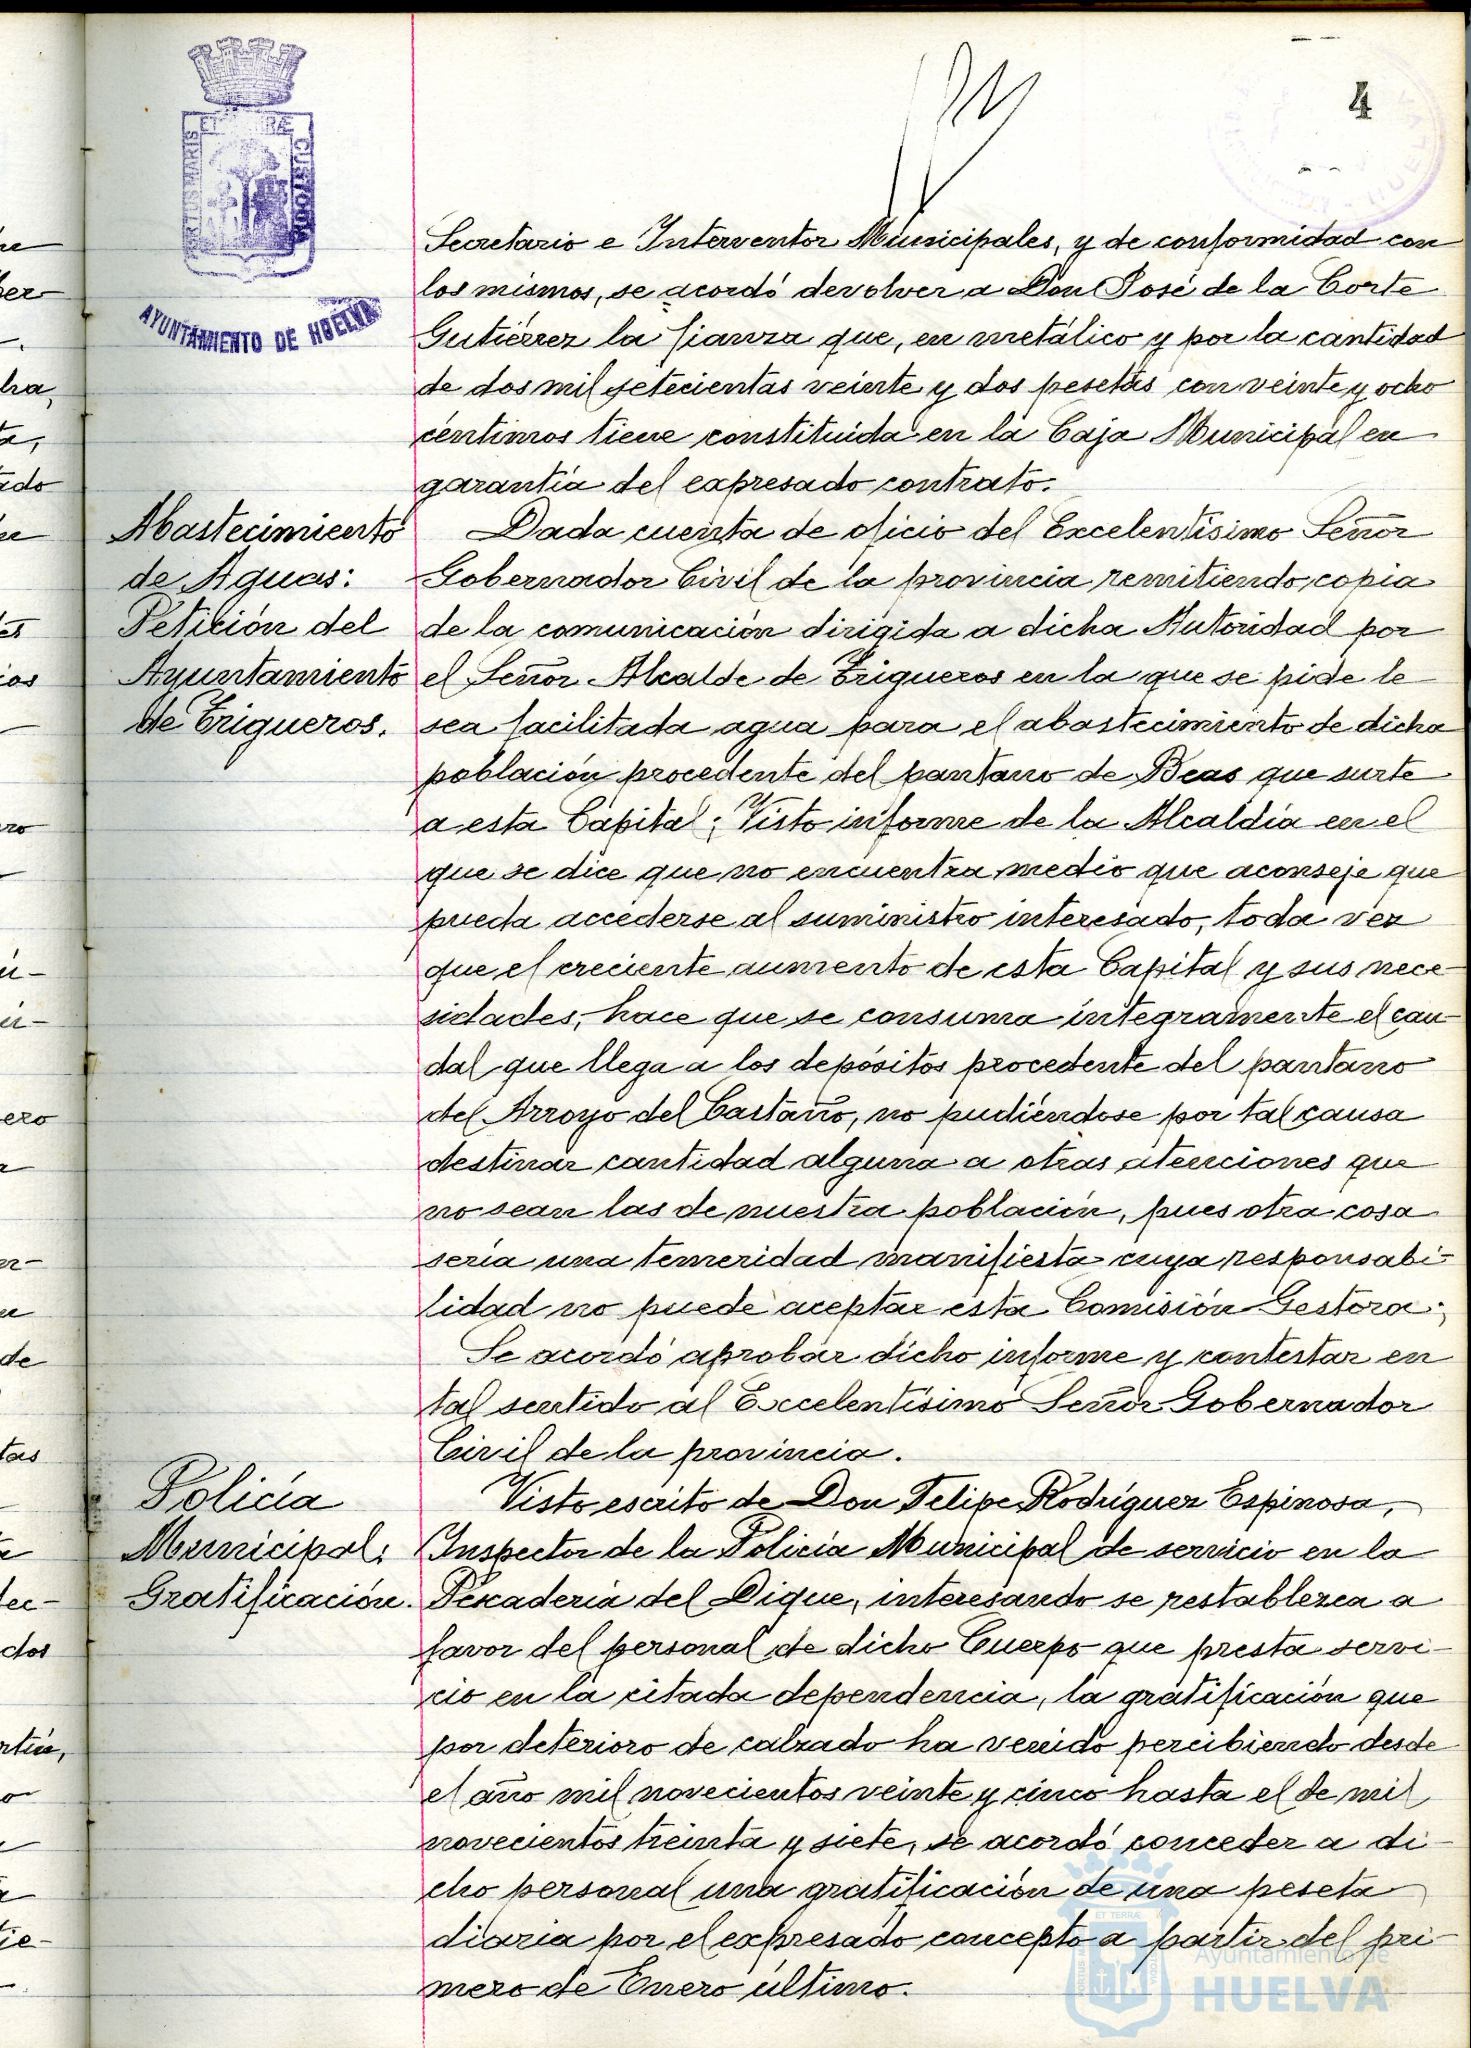 4
PORTUS MARIS ET TERRÆ CUSTODIA
AYUNTAMIENTO DE HUELVA
Secretario e Interventor Municipales, y de conformidad con
los mismos, se acordó devolver a Don José de la Corte
Gutiérrez la fianza que, en metálico y por la cantidad
de dos mil setecientas veinte y dos pesetas con veinte y ocho
céntimos tiene constituida en la Caja Municipal en
garantía del expresado contrato.
Abastecimiento
de Aguas:
Petición del
Ayuntamiento
de Trigueros.
Dada cuenta de oficio del Excelentísimo Señor
Gobernador Civil de la provincia remitiendo copia
de la comunicación dirigida a dicha Autoridad por
el Señor Alcalde de Trigueros en la que se pide le
sea facilitada agua para el abastecimiento de dicha
población procedente del pantano de Beas que surte
a esta Capital; Visto informe de la Alcaldía en el
que se dice que no encuentra medio que aconseje que
pueda accederse al suministro interesado, toda vez
que el creciente aumento de esta Capital y sus nece-
sidades, hace que se consuma íntegramente el cau-
dal que llega a los depósitos procedente del pantano
del Arroyo del Castaño, no pudiéndose por tal causa
destinar cantidad alguna a otras atenciones que
no sean las de nuestra población, pues otra cosa
sería una temeridad manifiesta cuya responsabi-
lidad no puede aceptar esta Comisión Gestora;
Se acordó aprobar dicho informe y contestar en
tal sentido al Excelentísimo Señor Gobernador
Civil de la provincia.
Policía
Municipal:
Gratificación.
Visto escrito de Don Felipe Rodríguez Espinosa,
Inspector de la Policía Municipal de servicio en la
Pescadería del Dique, interesando se restablezca a
favor del personal de dicho Cuerpo que presta servi-
cio en la citada dependencia, la gratificación que
por deterioro de calzado ha venido percibiendo desde
el año mil novecientos veinte y cinco hasta el de mil
novecientos treinta y siete, se acordó conceder a di-
cho personal una gratificación de una peseta
diaria por el expresado concepto a partir del pri-
mero de Enero último.
Ayuntamiento de
HUELVA